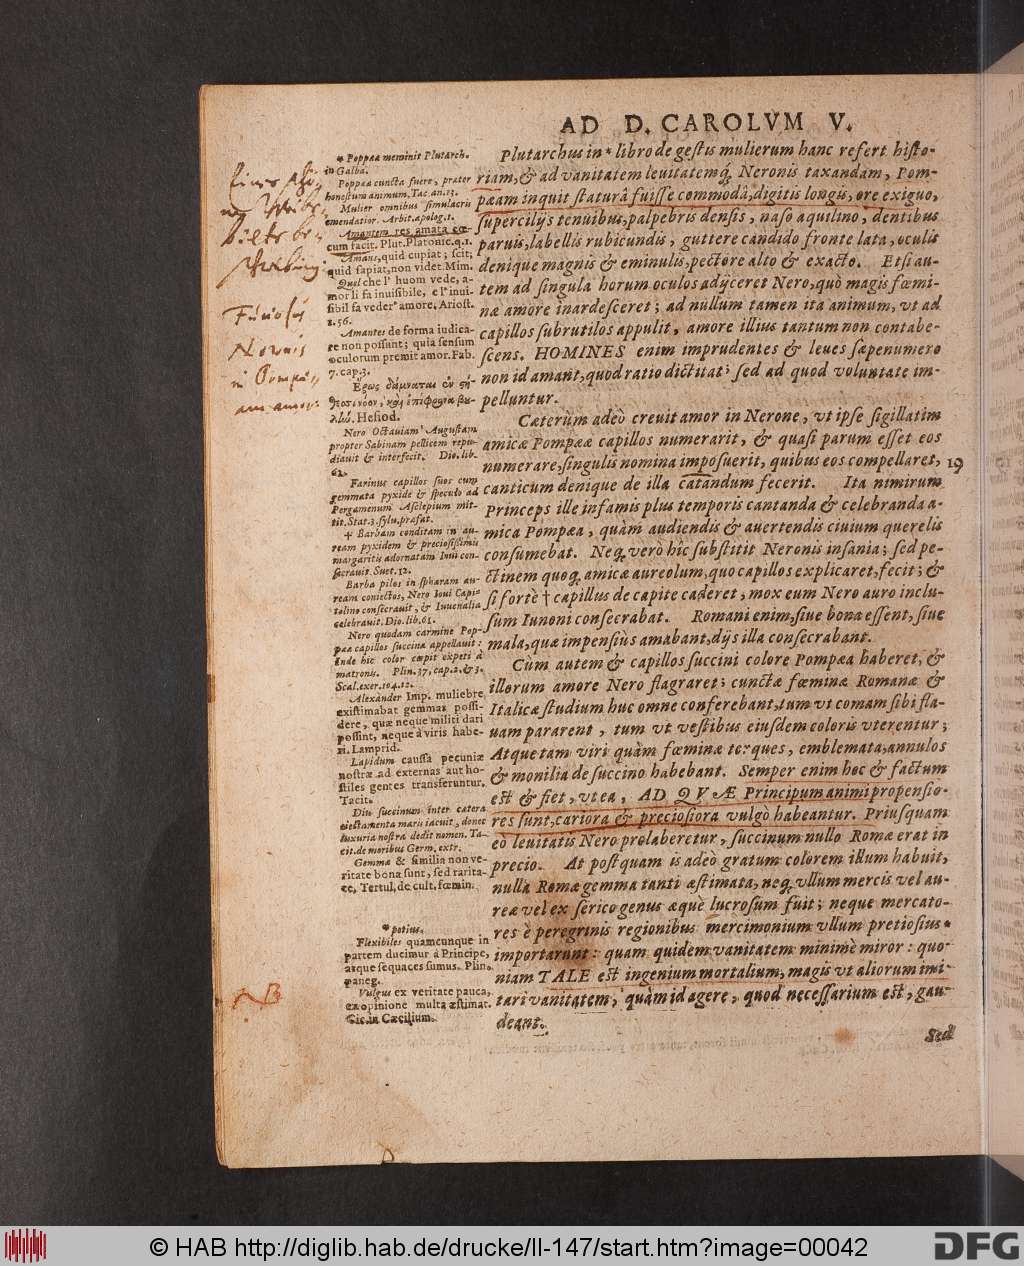 AD D. CAROLVM V.
Plutarchus in * libro de gestis mulierum hanc refert histo-
riam, & ad vanitatem leuitatemq́; Neronis taxandam, Pom-
pæam inquit staturâ fuisse commodâ, digitis longis, ore exiguo,
supercilijs tenuibus, palpebris densis, naso aquilino, dentibus
paruis, labellis rubicundis, gutture candido fronte lata, oculis
denique magnis & eminulis, pectore alto & exacto. Etsi au-
tem ad singula horum oculos adijceret Nero, quò magis fœmi-
næ amore inardesceret; ad nullum tamen ita animum, vt ad
capillos subrutilos appulit, amore illius tantum non contabe-
scens. HOMINES enim imprudentes & leues sæpenumero
non id amant, quod ratio dictitat; sed ad quod voluntate im-
pelluntur.
Cæterùm adeò creuit amor in Nerone, vt ipse sigillatim
amicæ Pompææ capillos numerarit, & quasi parum esset eos
numerare, singulis nomina imposuerit, quibus eos compellaret,
canticum denique de illa catandum fecerit. Ita nimirum
Princeps ille infamis plus temporis cantanda & celebranda a-
mica Pompæa, quàm audiendis & auertendis ciuium querelis
consumebat. Neq́; verò hîc substitit Neronis insania; sed pe-
ctinem quoq́; amicæ aureolum, quo capillos explicaret, fecit; &
si fortè † capillus de capite caderet, mox eum Nero auro inclu-
sum Iunoni consecrabat. Romani enim, siue bona essent, siue
mala, quæ impensiùs amabant, dijs illa consecrabant.
Cùm autem & capillos succini colore Pompæa haberet, &
illorum amore Nero flagraret; cunctæ fœminæ Romanæ &
Italicæ studium huc omne conferebant, tum vt comam sibi fla-
uam pararent, tum vt vestibus eiusdem coloris vterentur;
Atque tam viri quàm fœminæ torques, emblemata, annulos
& monilia de succino habebant. Semper enim hoc & factum
est & fiet, vt ea, AD QVÆ Principum animi propensio-
res sunt, cariora & preciosiora vulgò habeantur. Priusquam
eò leuitatis Nero prolaberetur, succinum nullo Romæ erat in
precio. At postquam is adeò gratum colorem illum habuit,
nulla Romæ gemma tanti æstimata, neq́; vllum mercis vel au-
reæ vel ex serico genus æquè lucrosum fuit; neque mercato-
res è peregrinis regionibus mercimonium vllum pretiosius *
importarunt: quam quidem vanitatem minimè miror: quo-
niam TALE est ingenium mortalium, magis vt aliorum imi-
tari vanitatem, quàm id agere, quod necessarium est, gau-
deant.
Sed
* Poppæa meminit Plutarch.
in Galba.
Poppæa cuncta fuere, præter
honestum animum. Tac. an. 13.
Mulier omnibus simulacris
emendatior. Arbit. apolog. 1.
Amantem res amata cœ-
cum facit. Plut. Platonic. q. 1.
Amans, quid cupiat; scit;
quid sapiat, non videt. Mim.
Quel che l' huom vede, a-
mor li fa inuisibile, e l' inui-
sibil fa veder' amore. Ariost.
1. 56.
Amantes de forma iudica-
re non possunt; quia sensum
oculorum premit amor. Fab.
7. cap. 3.
Hesiod.
Nero Octauiam Augustam
propter Sabinam pellicem repu-
diauit & interfecit. Dio. lib.
62.
Farinus capillos suos cum
gemmata pyxide & speculo ad
Pergamenum Asclepium mit-
tit. Stat. 3. sylu. præfat.
† Barbam conditam in au-
ream pyxidem & preciosissimis
margaritis adornatam Ioui con-
secrauit. Suet. 12.
Barba pilos in spheram au-
ream coniectos, Nero Ioui Capi-
tolino consecrauit, & Iuuenalia
celebrauit. Dio. lib. 61.
Nero quodam carmine Pop-
pææ capillos succina appellauit:
Inde hic color cœpit expeti à
matronis. Plin. 37. cap. 2. & 3.
Scal. exer. 104. 12.
Alexander Imp. muliebre
existimabat gemmas possi-
dere, quæ neque militi dari
possint, neque à viris habe-
ri. Lamprid.
Lapidum caussa pecuniæ
nostræ ad externas aut ho-
stiles gentes transferuntur.
Tacit.
Diu succinum inter cætera
eiectamenta maris iacuit, donec
luxuria nostra dedit nomen. Ta-
cit. de moribus Germ. extr.
Gemmæ & similia non ve-
ritate bona sunt, sed rarita-
te. Tertul. de cult. fœmin.
* potius.
Flexibiles quamcunque in
partem ducimur à Principe,
atque sequaces sumus. Plin.
paneg.
Vulgus ex veritate pauca,
ex opinione multa æstimat.
Cic. in Cæcilium.
Furiosus
Neronis
in Pompæ-
am amor.
NB
19
© HAB http://diglib.hab.de/drucke/ll-147/start.htm?image=00042
DFG